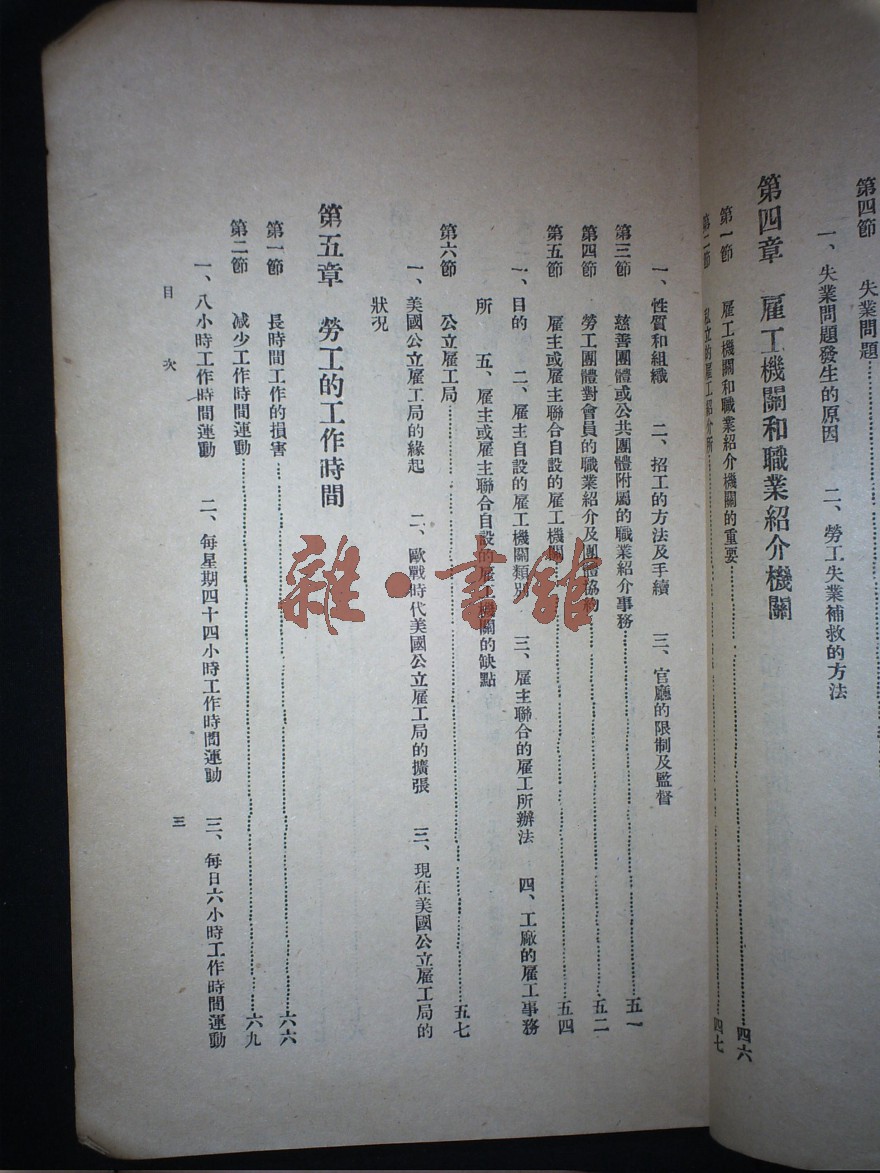 第四節　失業問題
一、失業問題發生的原因　二、勞工失業補救的方法
第四章　雇工機關和職業紹介機關
第一節　雇工機關和職業紹介機關的重要　四六
第二節　私立的雇工紹介所　四七
一、性質和組織　二、招工的方法及手續　三、官廳的限制及監督
第三節　慈善團體或公共團體附屬的職業紹介事務　五一
第四節　勞工團體對會員的職業紹介及團體協約　五二
第五節　雇主或雇主聯合自設的雇工機關　五四
一、目的　二、雇主自設的雇工機關類別　三、雇主聯合的雇工所辦法　四、工廠的雇工事務
所　五、雇主或雇主聯合自設的雇工機關的缺點
第六節　公立雇工局　五七
一、美國公立雇工局的緣起　二、歐戰時代美國公立雇工局的擴張　三、現在美國公立雇工局的
狀况
第五章　勞工的工作時間
第一節　長時間工作的損害　六六
第二節　减少工作時間運動　六九
一、八小時工作時間運動　二、每星期四十四小時工作時間運動　三、每日六小時工作時間運動
目次
三
雜·書館